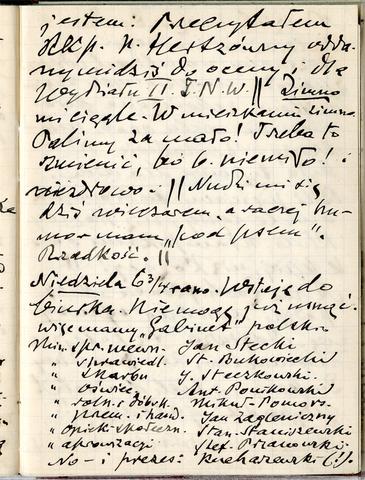 jestem: Przeczytałem
Rkp. p. Hertzówny odda-
ny mi dziś do oceny, dla
Wydziału II T.N.W. || Zimno
mi ciągle. W mieszkaniu zimno.
Palimy za mało! Trzeba to
zmienić, bo b. niemiło! i
niezdrowo. || Nudzi mi się
dziś wieczorem, a raczej hu-
mor mam „pod psem".
Rzadkość. ||
Niedziela 6 3/4 rano. Wstaję do
biurka. Nie mogę już usnąć.
więc mamy „Gabinet" polski.
Min. spr. wewn. Jan Stecki
" sprawiedl. St. Bukowiecki
" skarbu J. Steczkowski.
" oświec. Ant. Ponikowski
" roln. i dóbr k. Mikuł. Pomors.
" przem. i hand. Jan Zagleniczny
" opieki społeczn. Stan. Staniszewski
" aprowizacji Stef. Przanowski.
No - i prezes: Kucharzewski (!).